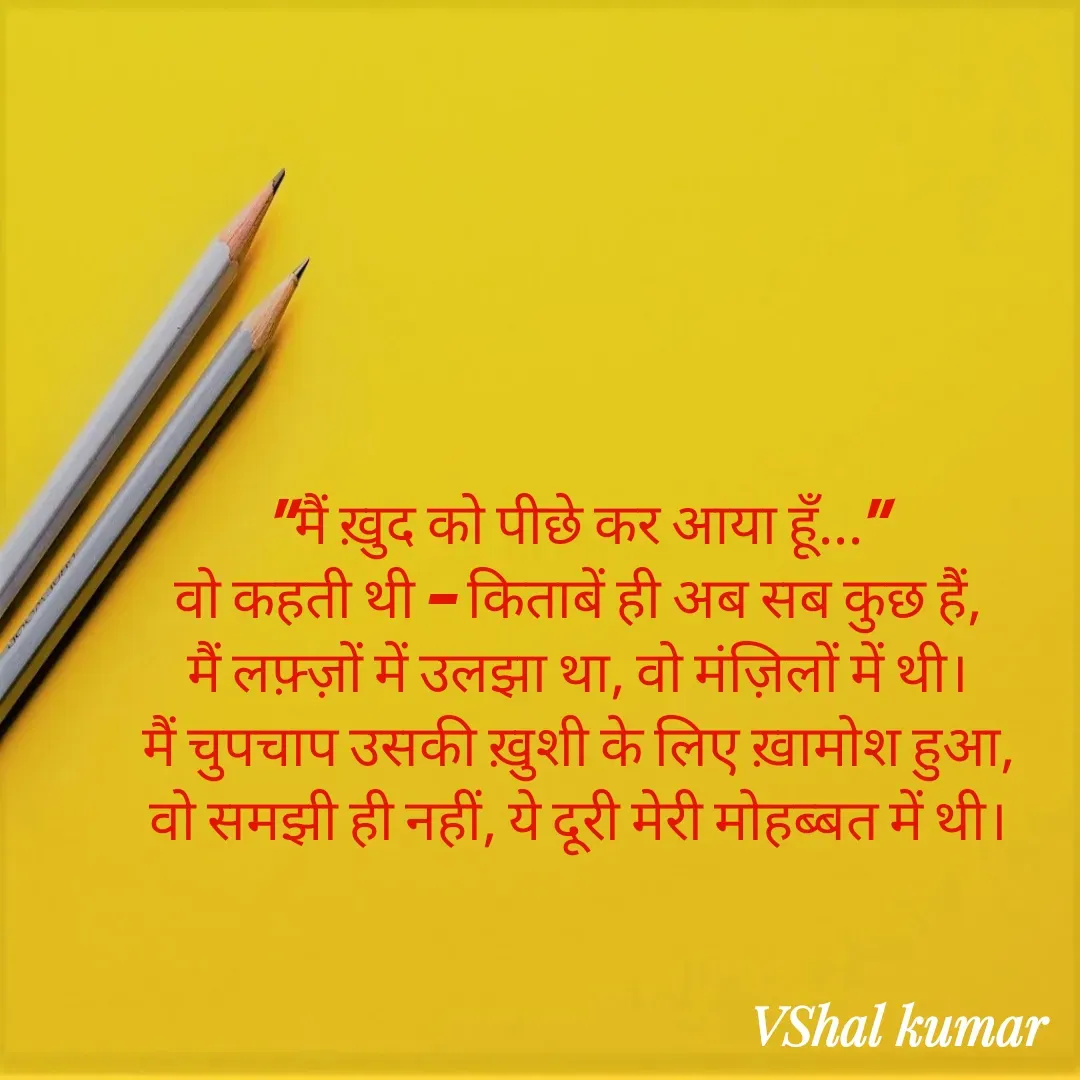 "मैं ख़ुद को पीछे कर आया हूँ..."
वो कहती थी – किताबें ही अब सब कुछ हैं,
मैं लफ़्ज़ों में उलझा था, वो मंज़िलों में थी।
मैं चुपचाप उसकी ख़ुशी के लिए ख़ामोश हुआ,
वो समझी ही नहीं, ये दूरी मेरी मोहब्बत में थी।
VShal kumar